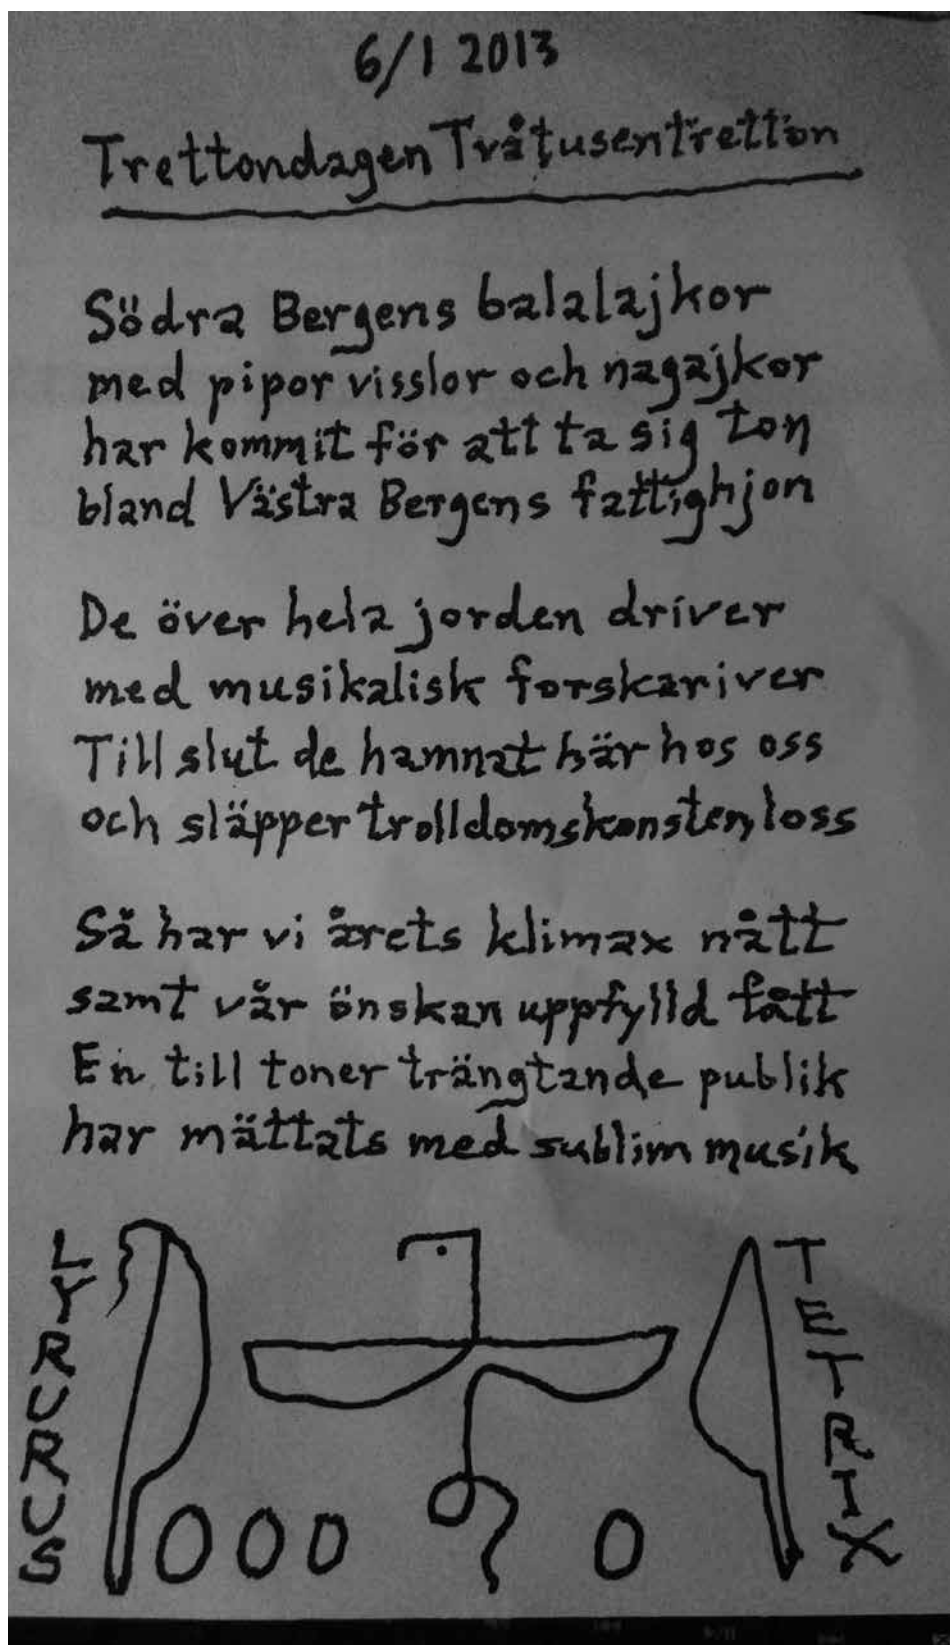 6/1 2013
Trettondagen Tvåtusentretton
Södra Bergens balalajkor
med pipor visslor och nagajkor
har kommit för att ta sig ton
bland Västra Bergens fattighjon
De över hela jorden driver
med musikalisk forskariver
Till slut de hamnat här hos oss
och släpper trolldomskonsten loss
Så har vi årets klimax nått
samt vår önskan uppfylld fått
En till toner trängtande publik
har mättats med sublim musik
LYRURUS
TETRIX